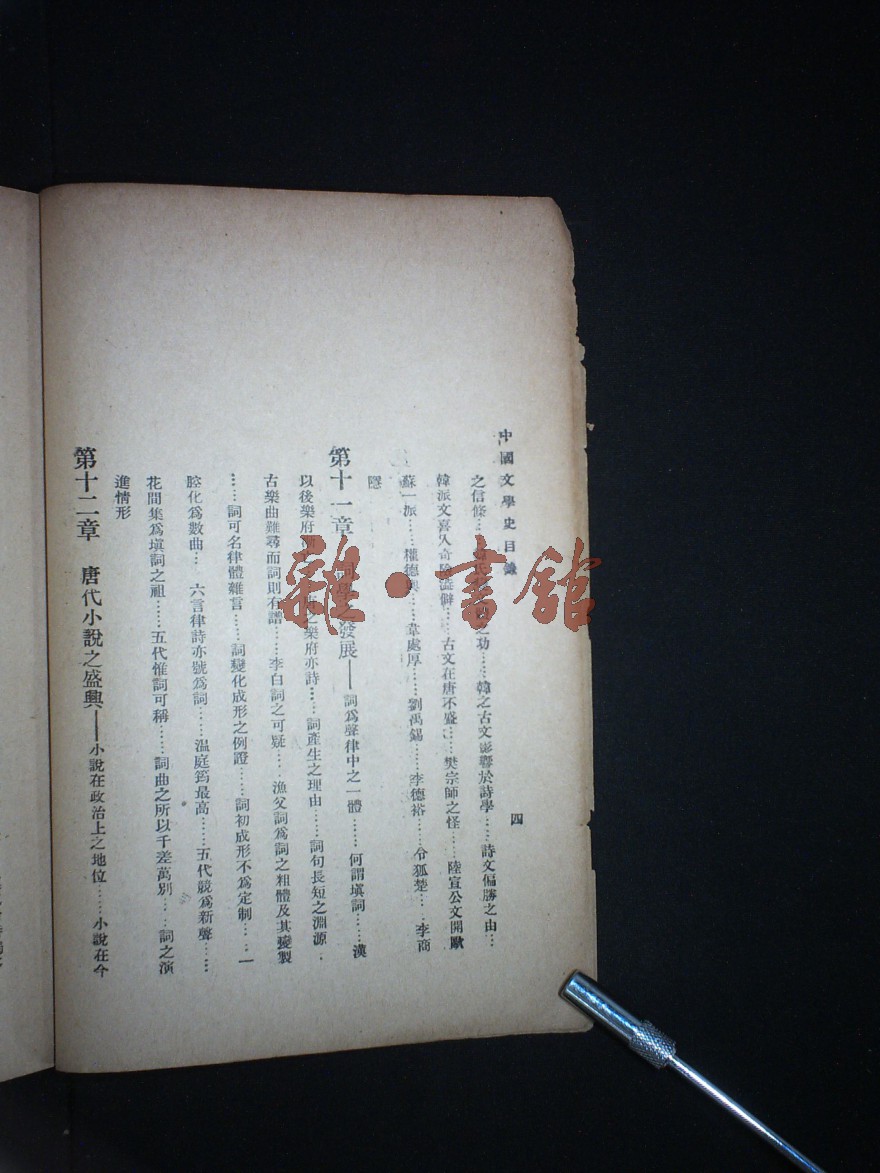 中國文學史目錄
四
之信條…之功……韓之古文影響於詩學……詩文偏勝之由…
韓派文喜入奇險澁僻……古文在唐不盛……樊宗師之怪……陸宣公文開歐
蘇一派……權德輿……韋處厚……劉禹錫……李德裕……令狐楚……李商
隱
第十一章 詞學之發展——詞爲聲律中之一體……何謂塡詞……漢
以後樂府之樂府亦詩……詞產生之理由……詞句長短之淵源…
古樂曲難尋而詞則有譜……李白詞之可疑……漁父詞爲詞之粗體及其變製
……詞可名律體雜言……詞變化成形之例證……詞初成形不爲定制……一
腔化爲數曲…六言律詩亦號爲詞……溫庭筠最高……五代競爲新聲……
花間集爲塡詞之祖……五代惟詞可稱……詞曲之所以千差萬別……詞之演
進情形
第十二章 唐代小說之盛興——小說在政治上之地位……小說在今
雜·書館